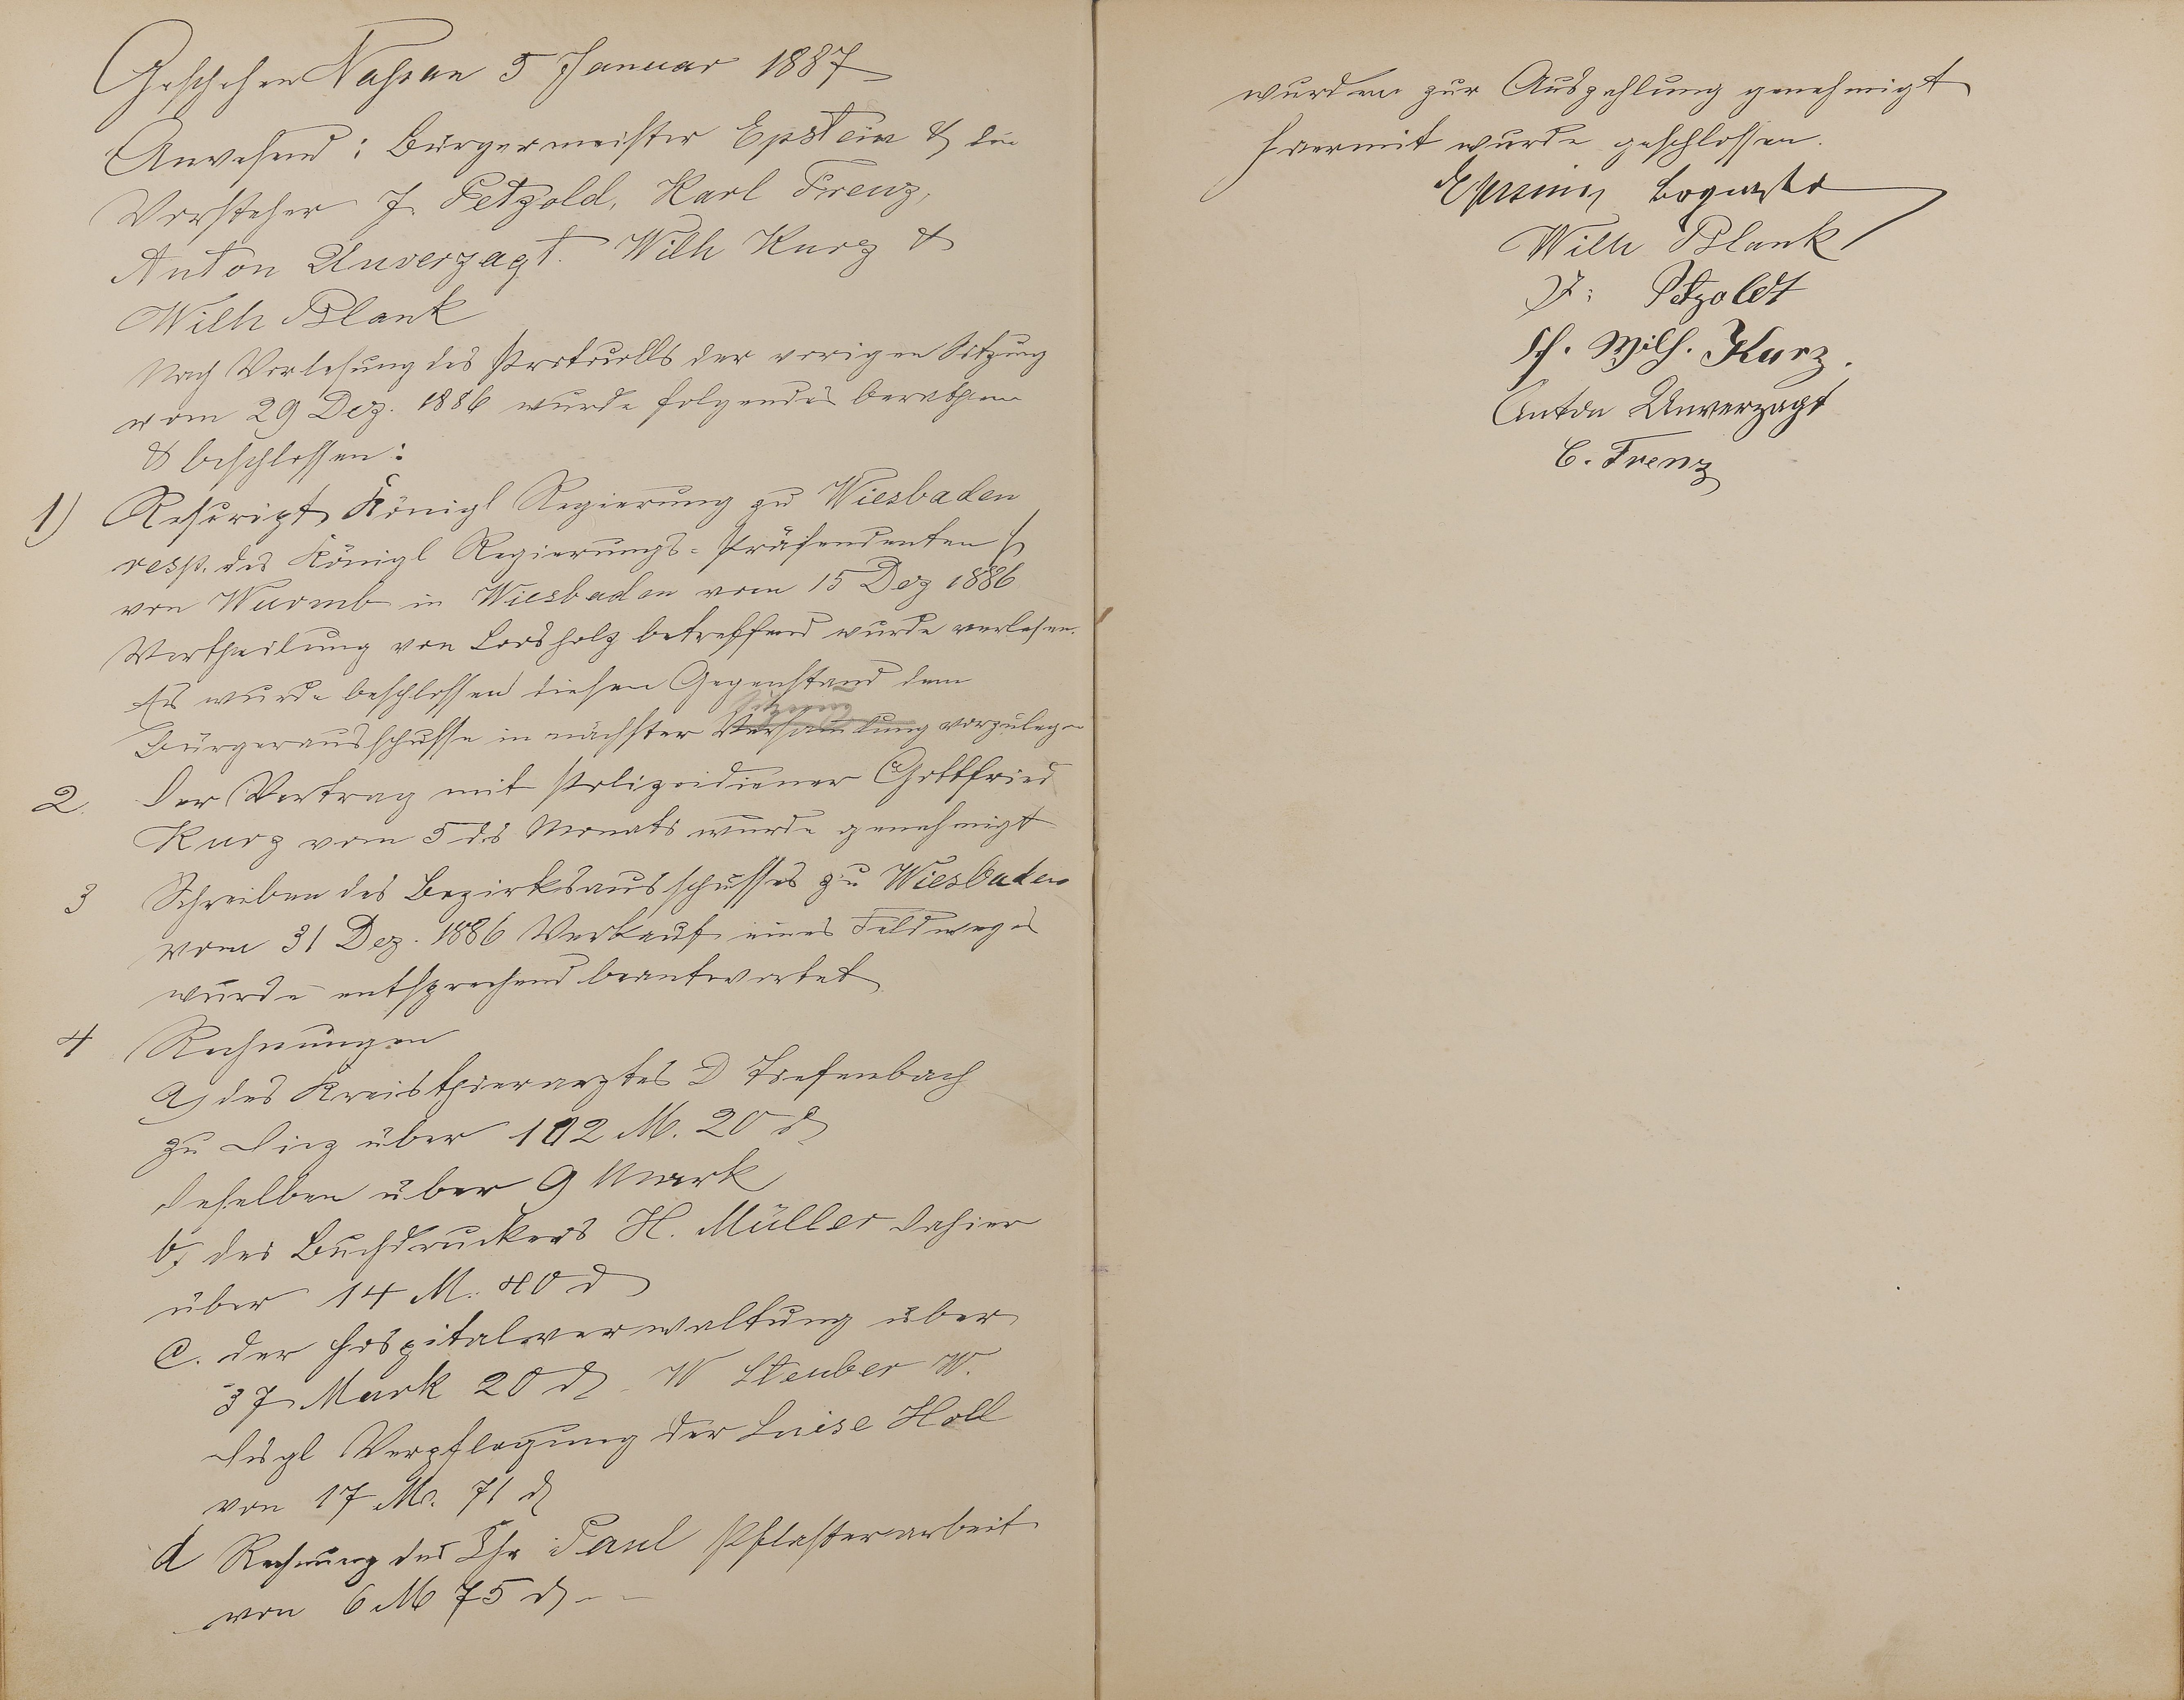 Geschehen Nassau 5 Januar 1887
Anwesend: Bürgermeister Epstein & die
Vorsteher J. Petzold, Karl Frenz,
Anton Unverzagt. Wilh Kurz &
Wilh Blank
Nach Vorlesung des Protocolls der vorigen Sitzung
vom 29 Dez. 1886 wurde folgendes berathen
& beschlossen:
1) Rescript Königl Regierung zu Wiesbaden
resp. des Königl Regierungs-Präsendenten H
von Wurmb in Wiesbaden vom 15 Dez 1886
Vertheilung von Loosholz betreffend wurde verlesen.
Es wurde beschlossen diesen Gegenstand dem
Sitzung
Bürgerausschusse in nächster Versamlung vorzulegen
2. Der Vertrag mit Polizeidiener Gottfried
Kurz vom 5 ds Monats wurde genehmigt
3 Schreiben des Bezirksausschusses zu Wiesbaden
vom 31 Dez. 1886 Verkauf eines Feldweges
wurde entsprechend beantwortet
4 Rechnungen
a) des Kreisthierarztes D Tiefenbach
zu Diez über 102 M. 20 d
deselben über 9 Mark
b) des Buchdruckers H. Müller dahier
über 14 M. 80 d
c. der Hospitalverwaltung über
37 Mark 20 d. W Steuber W.
dsgl Verpflegung der Luise Holl
von 17 M. 71 d
d Rechnung des Chr Paul Pflasterarbeit
von 6 M 75 d --
wurden zur Auszahlung genehmigt
Hiermit wurde geschlossen.
Epstein
Wilh Blank
J: Petzoldt
Wilh. Kurz.
Anton Unverzagt
C. Frenz